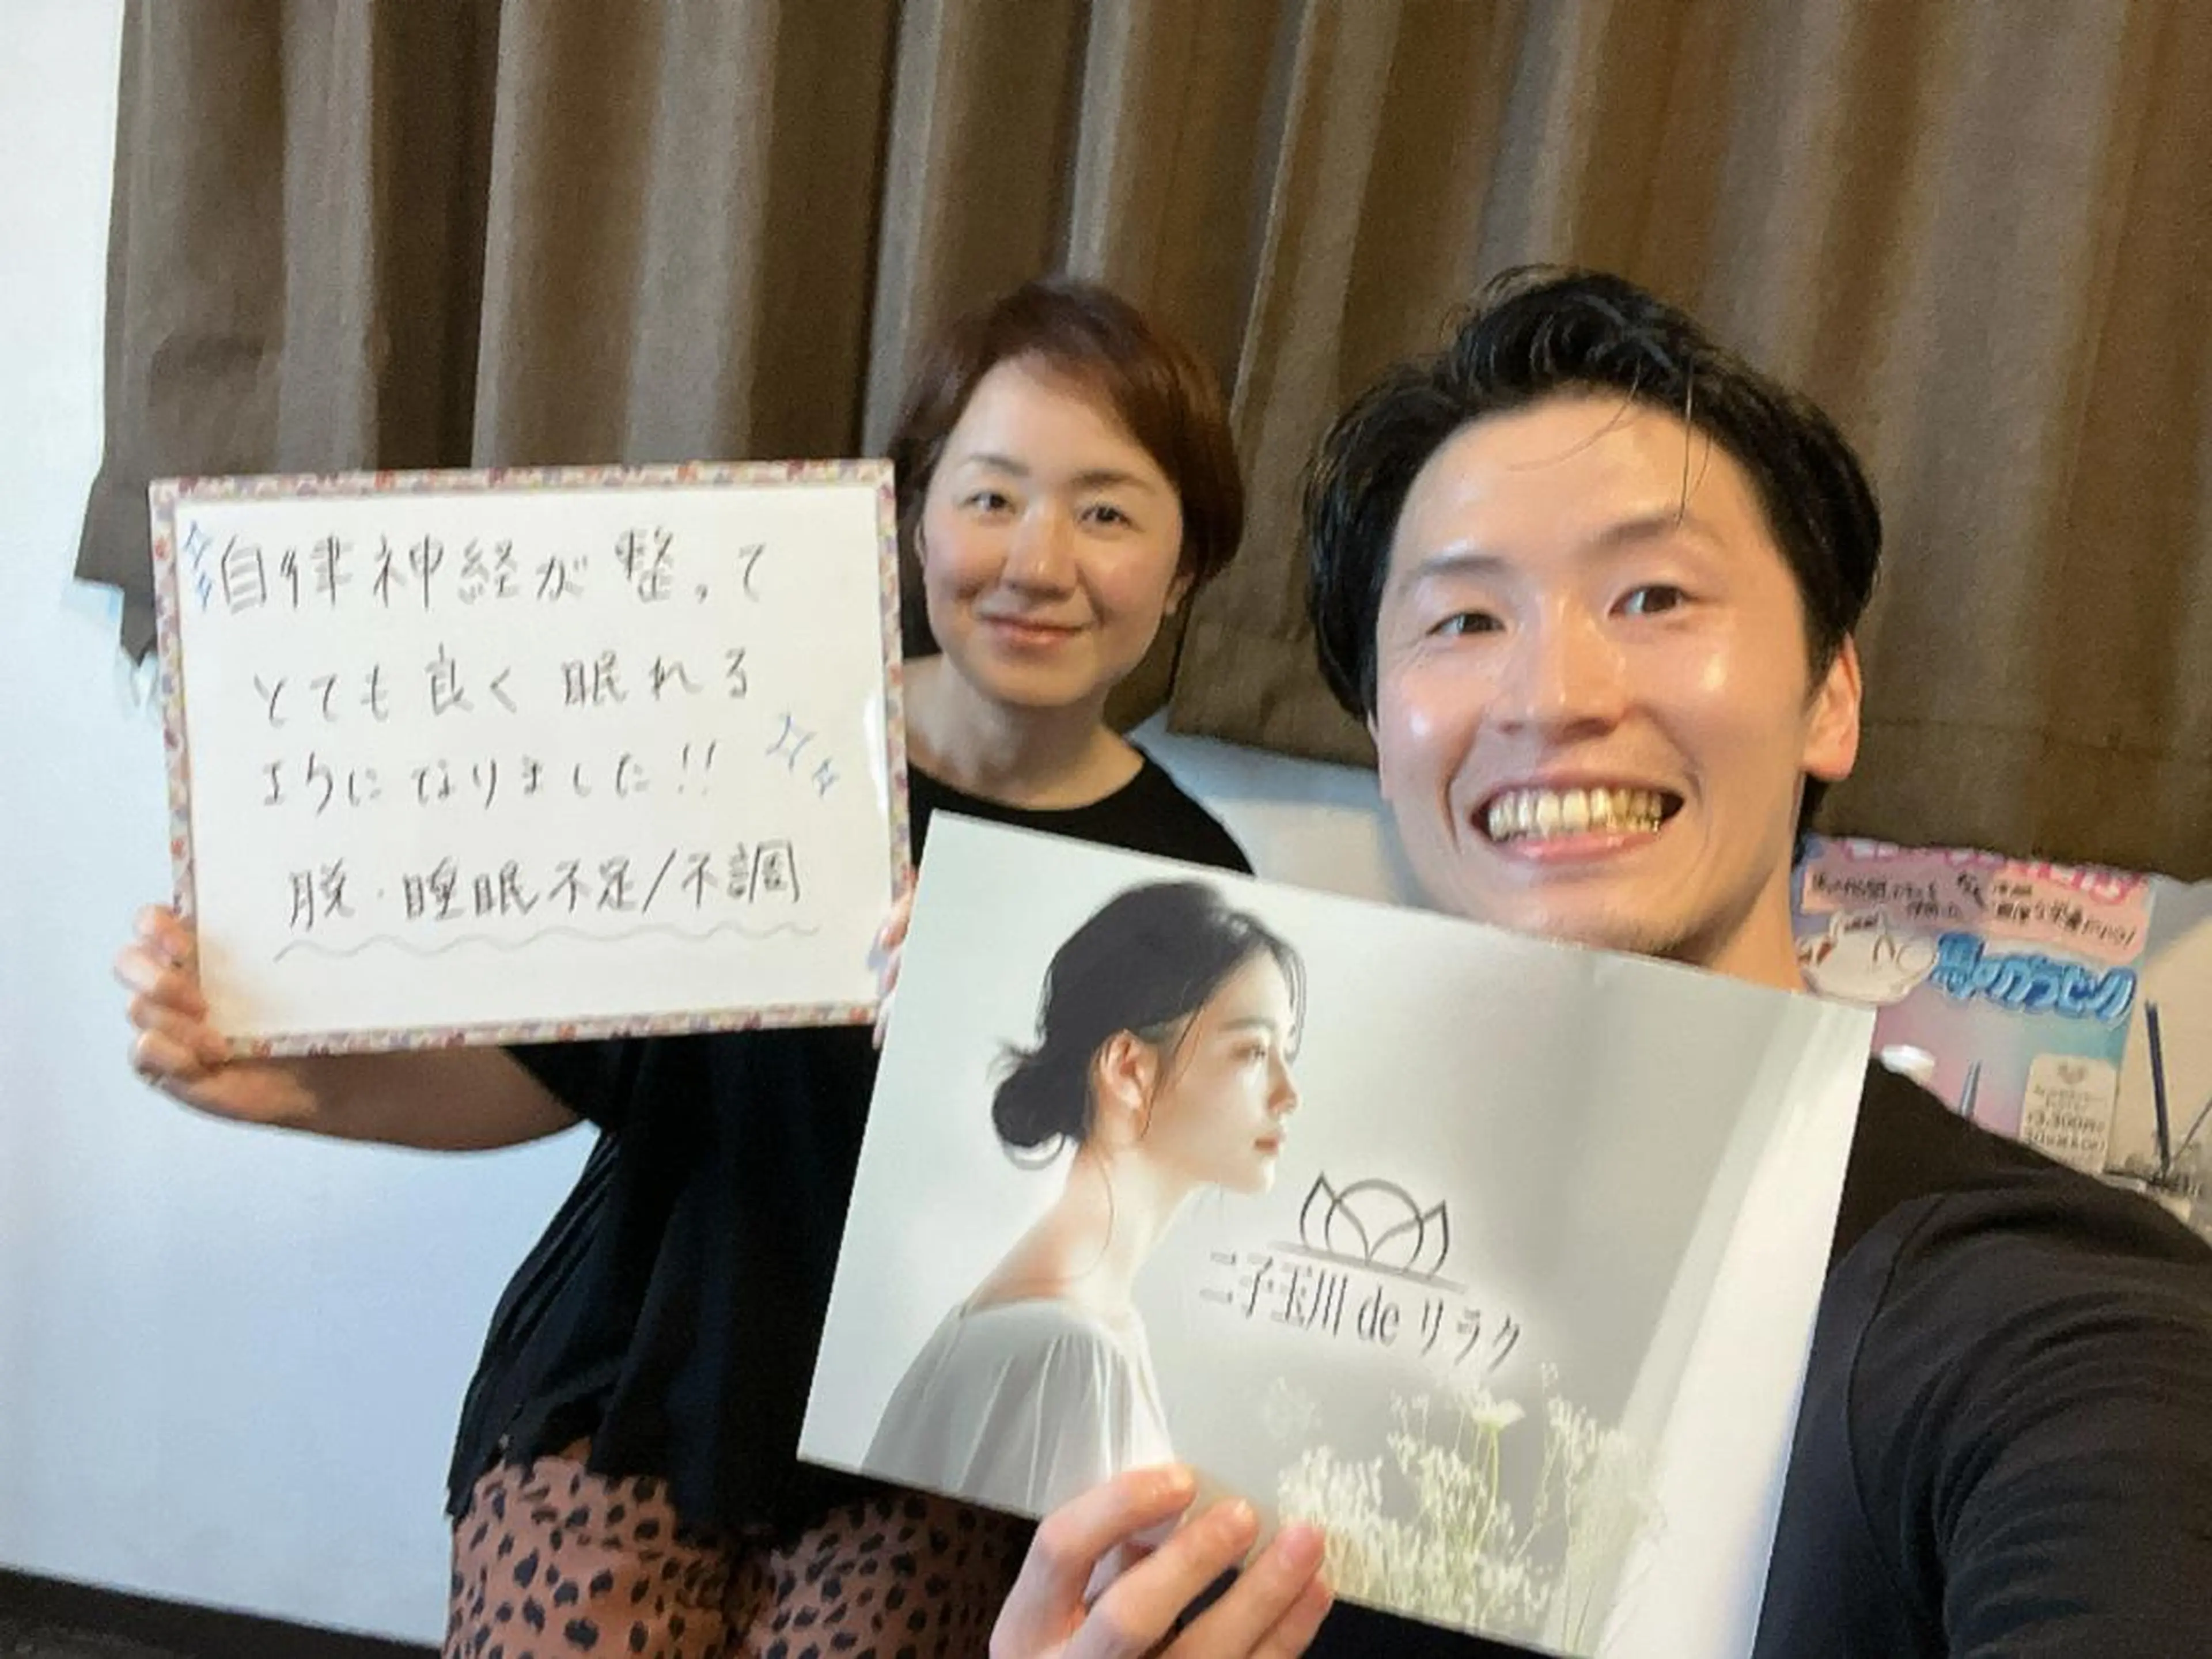 自律神経が整って
とても良く眠れる
ようになりました!!
脱・睡眠不足/不調
二子玉川 de リラク